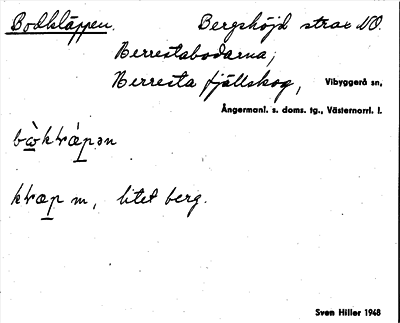 Bodkläppen. Bergshöjd strax NO.
Herrestabodarna,
Herresta fjällskog, Vibyggerå sn,
Ångermanl. s. doms. tg., Västernorrl. l.
litet berg.
Sven Hiller 1948